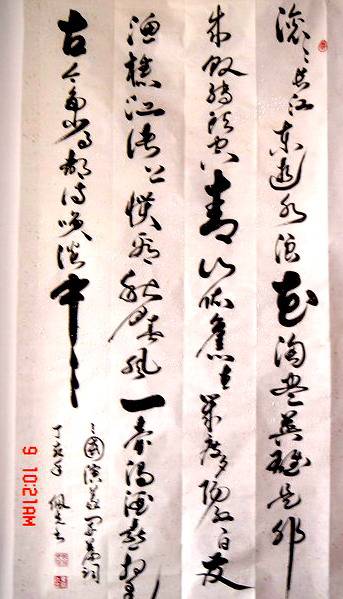 滚〻长江东逝水浪花淘尽英雄是非
成败转头空青山依旧在几度夕阳红白发
渔樵江渚上惯看秋月春风一壶浊酒喜相逢
古今多少事都付笑谈中
三國演义开篇词
丁亥年
9 10:27AM